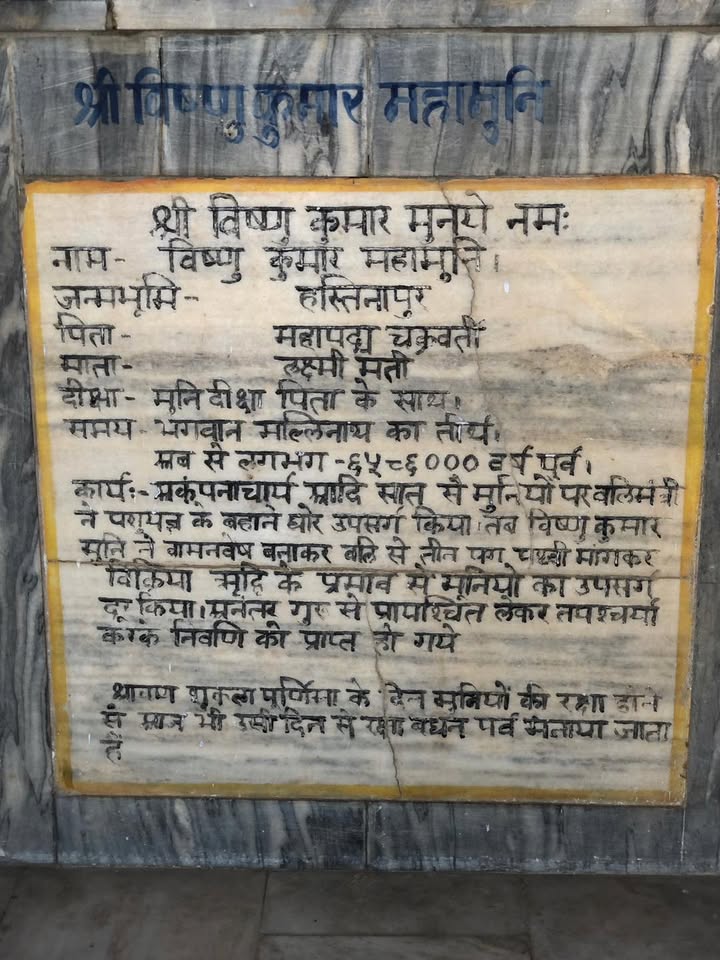 श्री विष्णु कुमार महामुनि
श्री विष्ण कुमार मुनये नमः
नाम- विष्णु कुमार महामुनि।
जन्मभूमि- हस्तिनापुर
पिता- महापद्म चक्रवर्ती
माता- लक्ष्मी मती
दीक्षा- मुनि दीक्षा पिता के साथ।
समय- भगवान मल्लिनाथ का तीर्थ।
अब से लगभग -६५८६००० वर्ष पूर्व।
कार्यः- अकंपनाचार्य आदि सात सै मुनियों पर बलि मंत्री
ने पशुयज्ञ के बहाने घोर उपसर्ग किया। तब विष्णु कुमार
मुनि ने वामनवेष बनाकर बलि से तीन पग पृथ्वी मांगकर
विक्रिया ऋद्धि के प्रभाव से मुनियो का उपसर्ग
दूर किया। अनंतर गुरु से प्रायश्चित लेकर तपश्चर्या
करके निर्वाण को प्राप्त हो गये
श्रावण शुक्ला पूर्णिमा के दिन मुनियों की रक्षा होने
से आज भी उसी दिन से रक्षा बंधन पर्व मनाया जाता
है